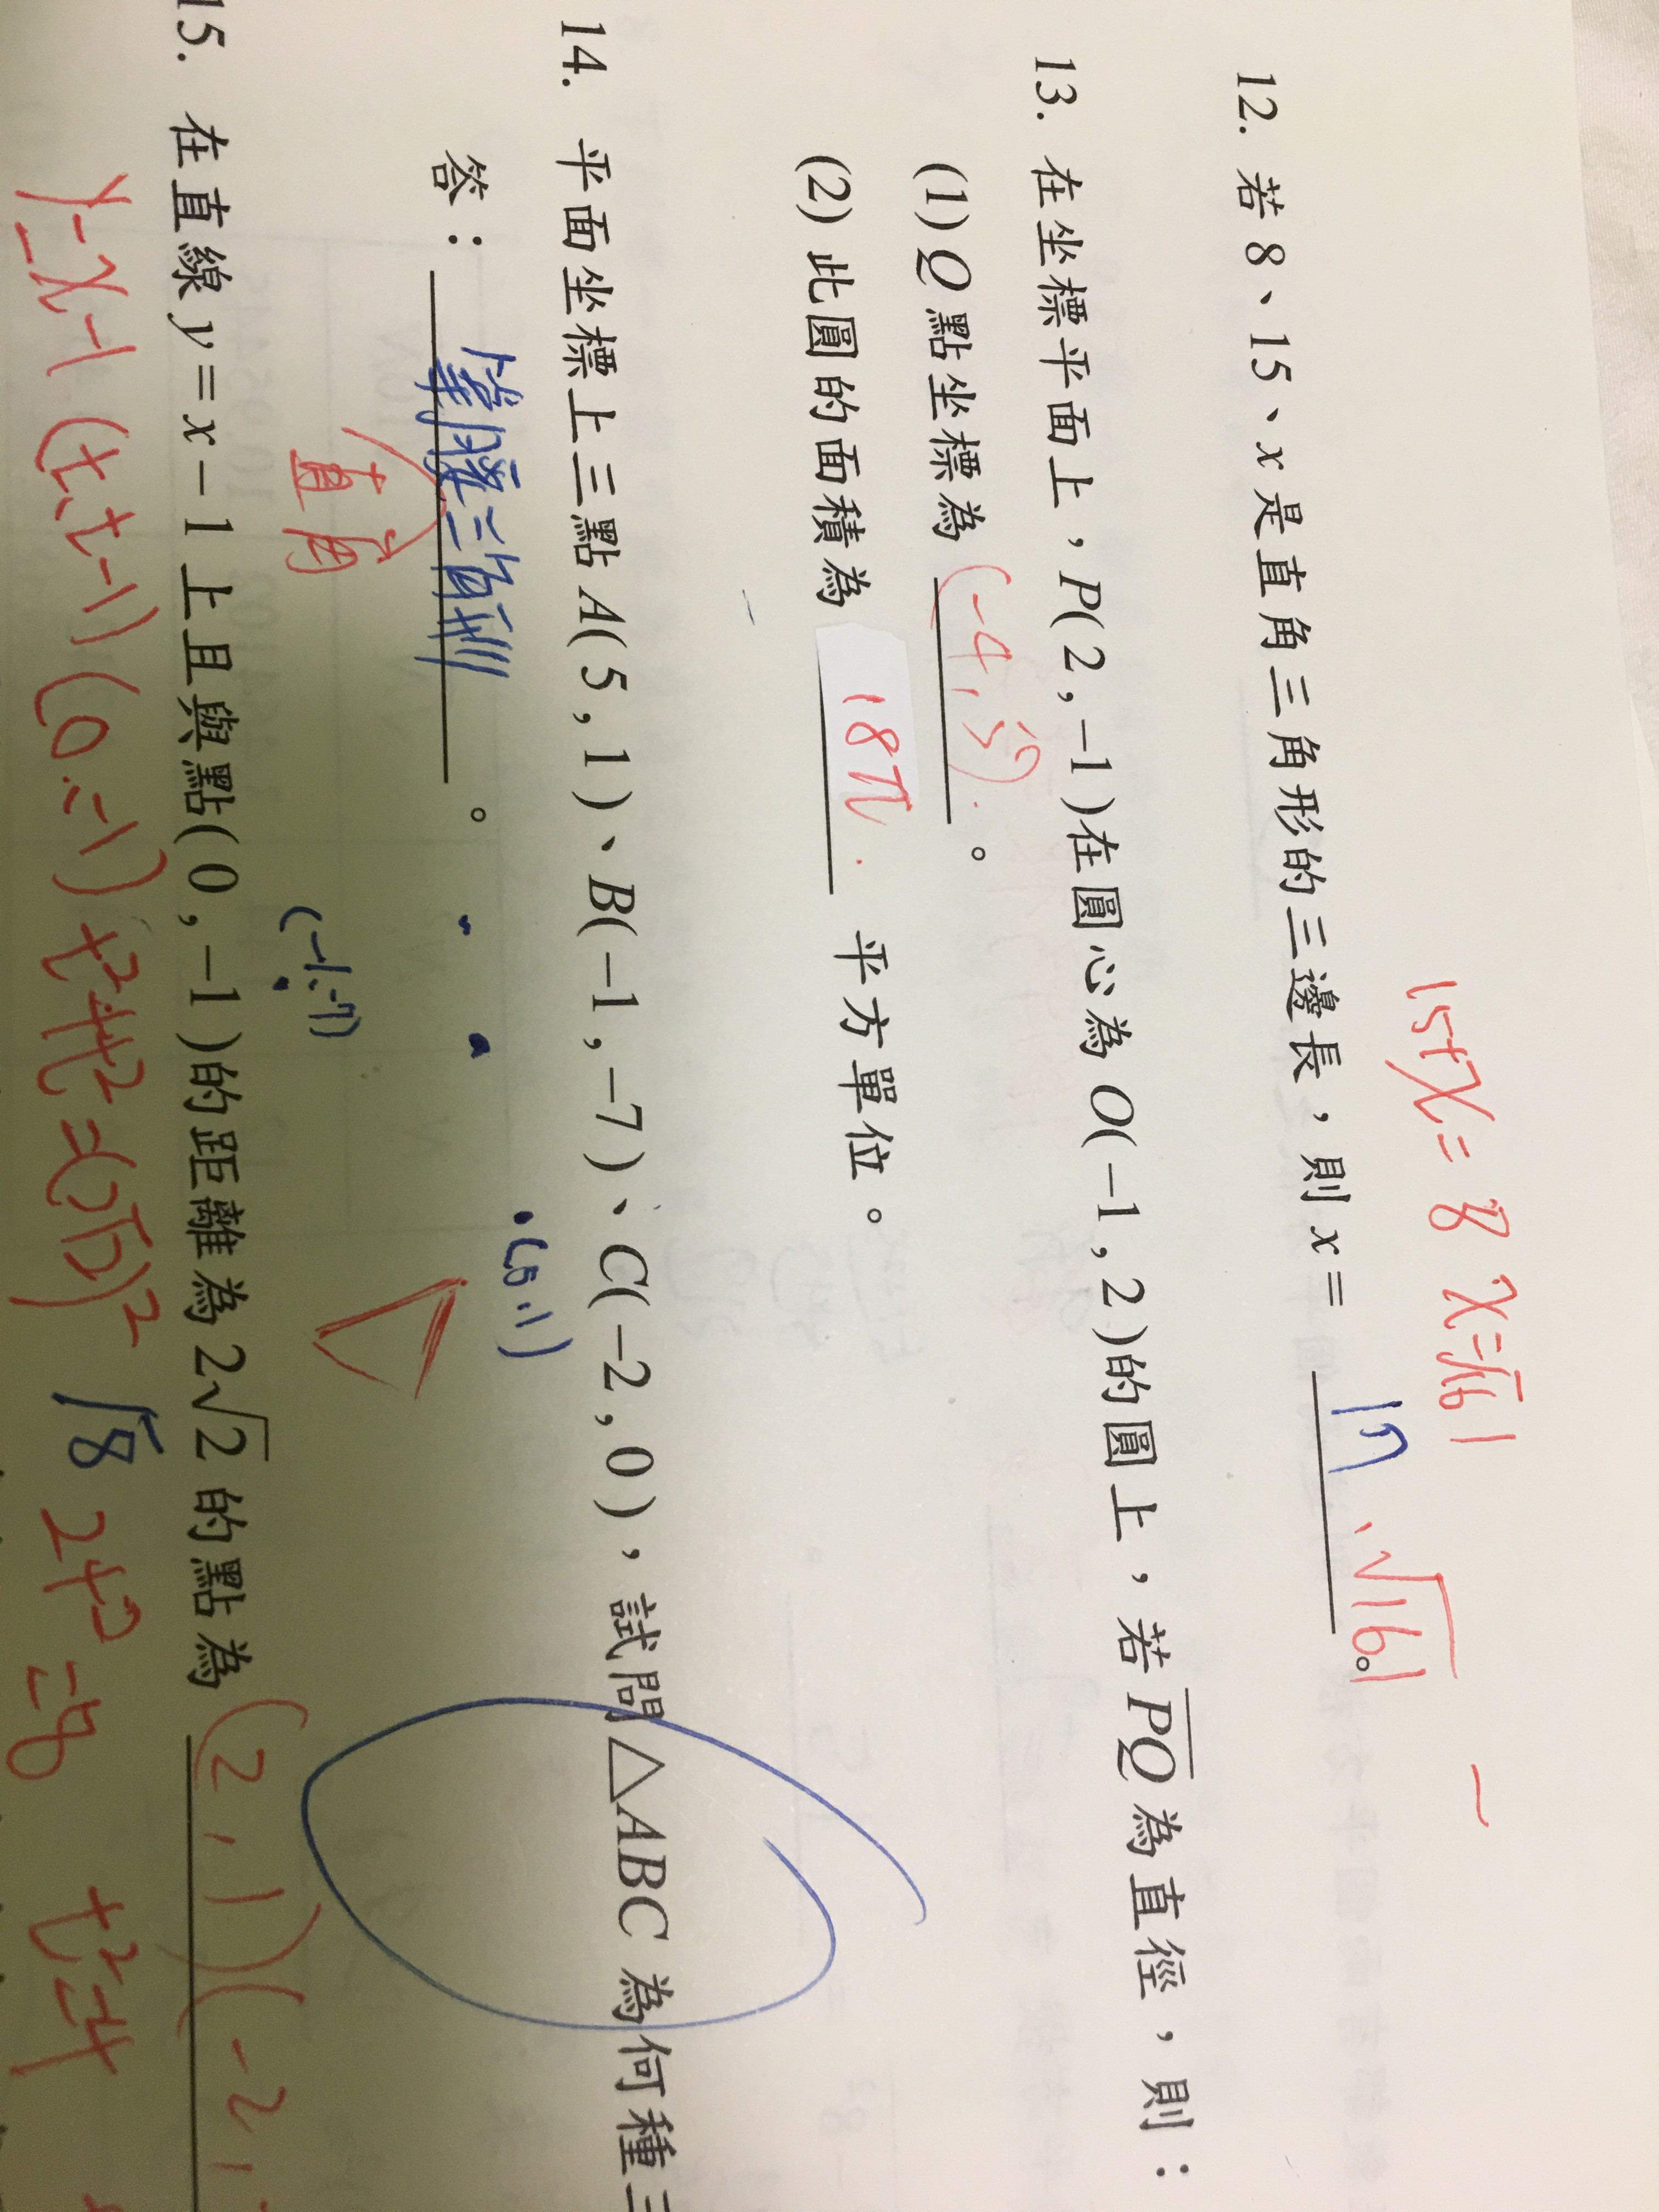 15+x=8 x=√161
12. 若 8、15、x 是直角三角形的三邊長，則 x= 17、√161。
13. 在坐標平面上，P(2,-1)在圓心為 O(-1,2)的圓上，若 PQ 為直徑，則：
(1) Q 點坐標為 (-4,5)。
(2) 此圓的面積為 18π 平方單位。
14. 平面坐標上三點 A(5,1)、B(-1,-7)、C(-2,0)，試問△ABC 為何種三
(5,1)
答：。
直角
(-1,-7)
15. 在直線 y=x-1 上且與點(0,-1)的距離為 2√2 的點為 (2,1)(-2,
y=x-1 (t,t-1) (0,-1) t²+t²= √8 =8 t²=4